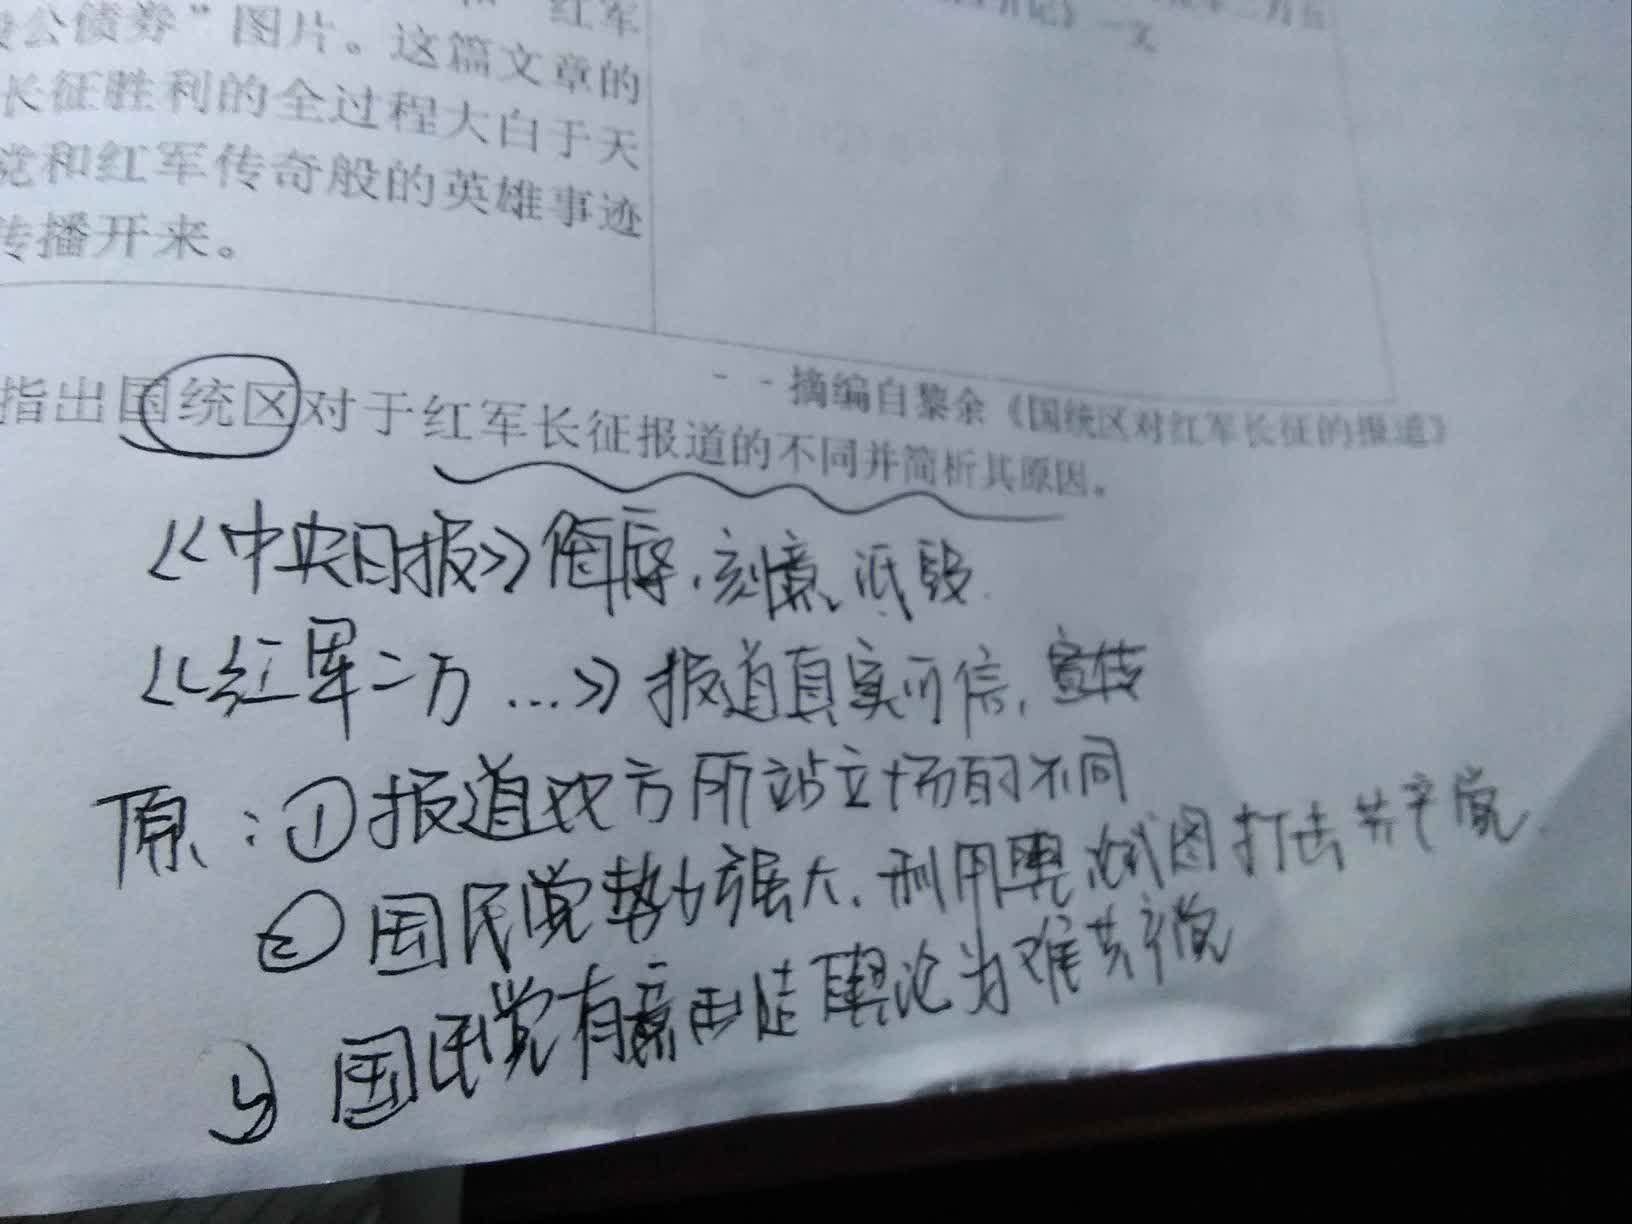 红军
公债券”图片。这篇文章的
长征胜利的全过程大白于天
党和红军传奇般的英雄事迹
传播开来。
》一文
--摘编自黎余《国统区对红军长征的报道》
指出国统区对于红军长征报道的不同并简析其原因。
《中央日报》侮辱、刻意、诋毁.
《红军二万...》报道真实可信,宣传
原:①报道双方所站立场的不同
②国民党势力强大.利用舆试图打击共产党.
国民党有意制造舆论为难共产党